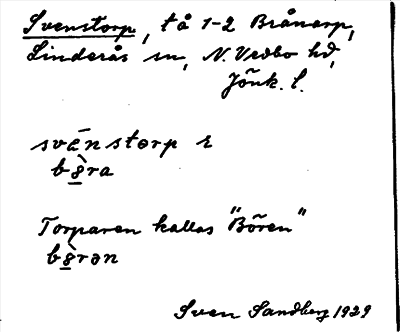 Svenstorp, tå 1-2 Brånarp,
Linderås sn, N. Vedbo hd,
Jönk. l.
svänstorp ɛ
bö̀ra
Torparen kallas "Bören"
bö̀rən
Sven Sandberg 1929